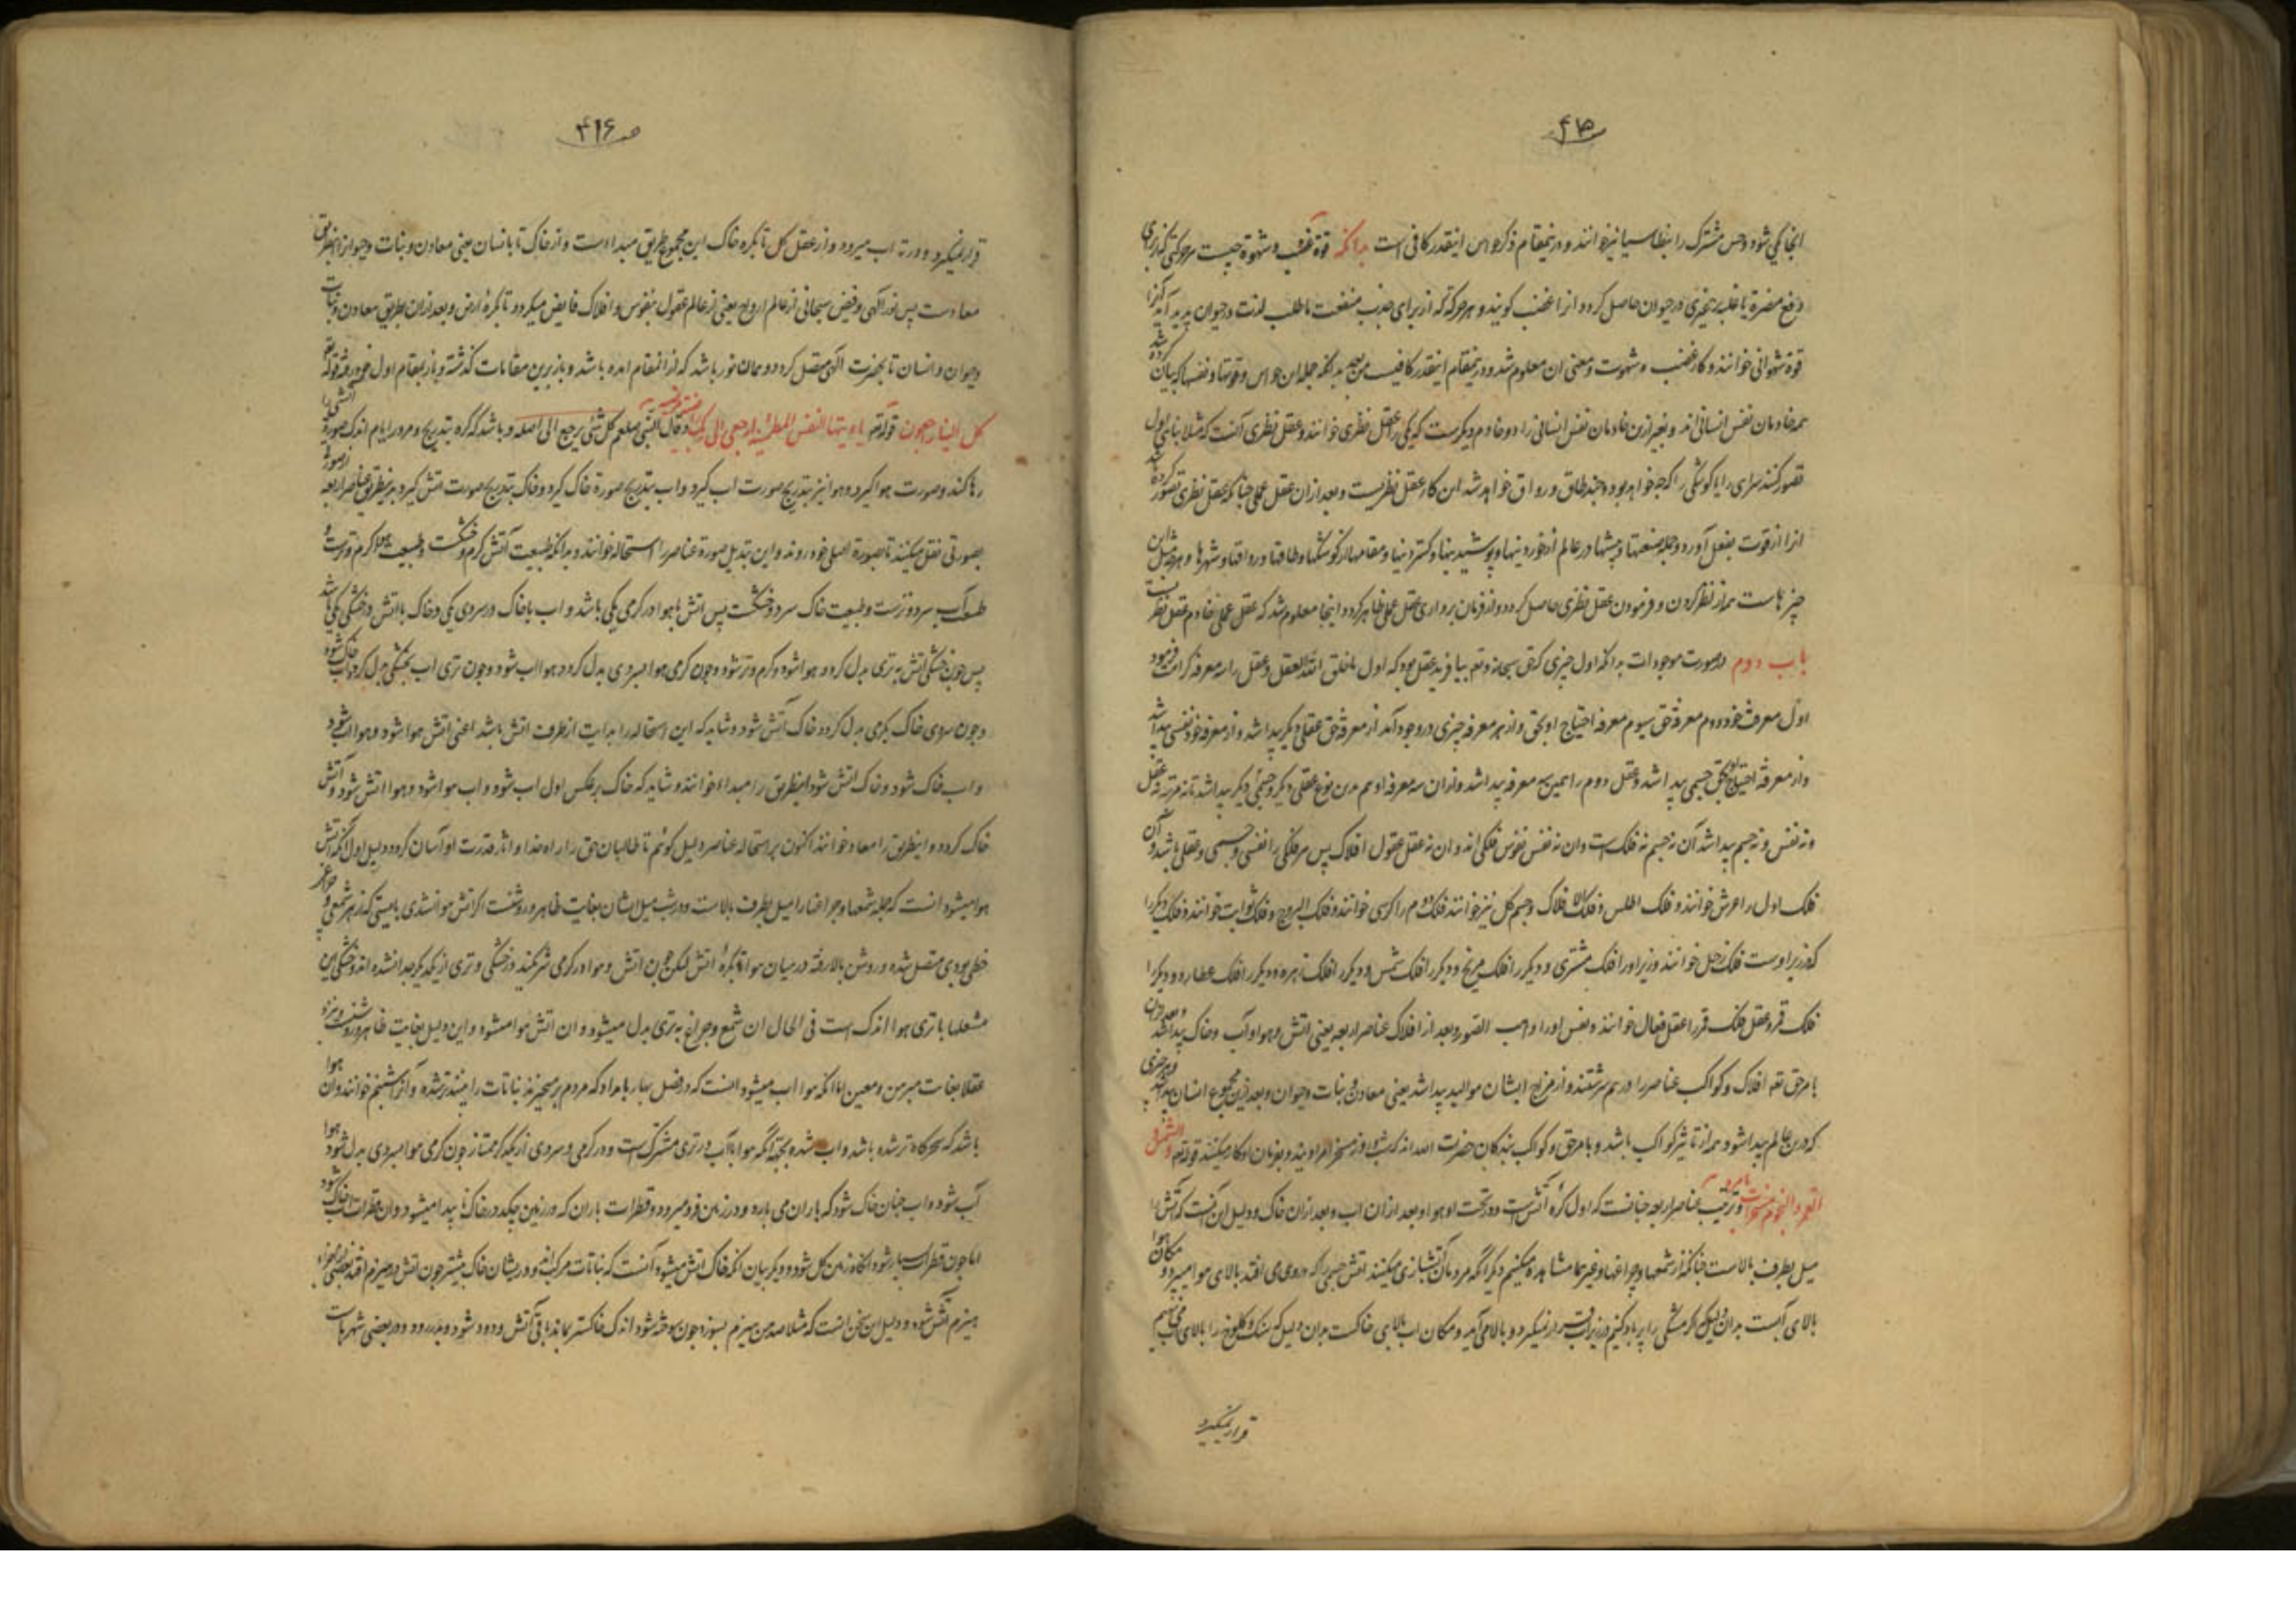 ۴۱۵
انجا یکی شود و حس مشترک را بنطاسیا نیز خوانند و درینمقام ذکر حواس اینقدر کافی است بدانکه قوة غضب و شهوة چیست هر حرکتی که از برای
دفع مضرة یا غلبه بر چیزی در حیوان حاصل کردد انرا غضب کویند و هر حرکة که از برای جذب منفعت یا طلب لذت در حیوان پدید آید آنرا
قوة شهوانی خوانند و کار غضب و شهوت و معنی ان معلوم شد و درینمقام اینقدر کافیست بدانکه جمله این حواس و قوتها و نفسها که بیان کرده شد
همه خادمان نفس انسانی اند و بغیر ازین خادمان نفس انسانی را دو خادم دیکرست که یکی را عقل نظری خوانند و عقل نظری آنست که مثلا بنائی اول
تصور کند سرای را یا کوشکی را که چه خواهد بود و چند طاق و رواق خواهد شد این کار عقل نظریست و بعد ازان عقل عملی چنانکه عقل نظری تصور کرده باشد
انرا از قوت بفعل آورد و جمله صنعتها و پیشها در عالم از خوردنیها و پوشیدنیها و کستردنیها و مقامها از کوشکها و طاقها و رواقها و شهرها و هرچه مثل این
چیزهاست همه از نظر کردن و فرمودن عقل نظری حاصل کردد و از فرمان برداری عقل عملی ظاهر کردد و اینجا معلوم شد که عقل عملی خادم عقل نظریست
باب دوم در صورت موجودات بدانکه اول چیزی که حق سبحانه و تعه بیافرید عقل بود که اول ما خلق الله العقل و عقل را سه معرفه کرامت فرمود
اول معرفت خود دوم معرفة حق سیوم معرفه احتیاج او بحق و از هر معرفه چیزی در وجود آمد از معرفة حق عقلی دیکر پیدا شد و از معرفة خود نفسی پیدا شد
و از معرفة احتیاج بحق جسمی پیدا شد و عقل دوم را همین سه معرفه پیدا شد و ازان سه معرفه او هم برین نوع عقلی دیکر و جسمی دیکر پیدا شد تا نه مرتبه نه عقل
و نه نفس و نه جسم پیدا شد آن نه جسم نه فلک است و ان نه نفس نفوس فلکی اند و ان نه عقل عقول افلاک پس هر فلکی را نفسی و جسمی و عقلی باشد و آن
فلک اول را عرش خوانند و فلک اطلس و فلک الافلاک و جسم کل نیز خوانند فلک دوم را کرسی خوانند و فلک البروج و فلک ثوابت خوانند و فلک دیکر را
که زیر اوست فلک زحل خوانند و زیر او را فلک مشتری و دیکر را فلک مریخ و دیکر را فلک شمس و دیکر را فلک زهره و دیکر را فلک عطارد و دیکر را
فلک قمر و عقل فلک قمر را عقل فعال خوانند و نفس او را واهب الصور و بعد از افلاک عناصر اربعه یعنی اتش و هوا و آب و خاک پیدا شد
بامر حق تعه افلاک و کواکب عناصر را در هم سرشتند و از مزاج ایشان موالید پیدا شد یعنی معادن و نبات و حیوان و بعد ازین مجموع انسان پیدا شد و هر چیزی
که درین عالم پیدا شود همه از تاثیر کواکب باشد و بامر حق و کواکب بندکان حضرت الله اند که شب و روز مسخر امر اویند و بفرمان او کار میکنند قوله تعه و الشمس و
القمر و النجوم مسخرات بامره و ترتیب عناصر اربعه چنانست که اول کره آتش است و در تحت او هوا و بعد ازان اب و بعد ازان خاک و دلیل ان آنست که آتش را
میل بطرف بالاست چنانکه از شمعها و چراغها و غیرها مشاهده میکنیم دیکر آنکه مردمان آتشبازی میکنند اتش جسمی را که در وی می افتد بالای هوا میبرد و مکان هوا
بالای آبست بدان دلیل که اکر مشکی را پر باد کنیم در زیر آب قرار نمیکیرد و بالا می آید و مکان اب بالای خاکست بدان دلیل که سنک و کلوخ را بالای آب می نهیم
قرار نمیکیرد
۴۱۶
قرار نمیکیرد و در ته اب میرود و از عقل کل تا بکره خاک این مجموع طریق مبداست و از خاک تا بانسان یعنی معادن و نبات و حیوان اینطریق
معادست پس نور الهی و فیض سبحانی از عالم ارواح یعنی از عالم عقول بنفوس و افلاک فایض میکردد تا بکرۀ ارض و بعد ازان بطریق معادن و نبات
و حیوان و انسان تا بحضرت الهی متصل کردد و همان نور باشد که از انمقام امده باشد و باز برین مقامات کذشته و باز بمقام اول خود رفته قوله تعه
کل الینا راجعون قوله تعه یا ایتها النفس المطمئنه ارجعی الی ربک و قال النبی صلعم کل شئ یرجع الی اصله و باشد که کره بتدریج و مرور ایام اندک صورة اتشی را
رها کند و صورت هوا کیرد و هوا نیز بتدریج صورت اب کیرد و اب بتدریج صورة خاک کیرد و خاک بتدریج صورت اتش کیرد برینطریق عناصر اربعه از صورة
بصورتی نقل میکنند تا بصورة اصلی خود روند و این تبدیل صورة عناصر را استحاله خوانند و بدانکه طبیعت آتش کرم و خشکست و طبیعت هوا کرم و ترست
طبیعت آب سرد و ترست و طبیعت خاک سرد و خشکست پس اتش با هوا در کرمی یکی باشد و اب با خاک در سردی یکی و خاک با اتش در خشکی یکی باشد
پس چون خشکی اتش به تری بدل کردد هوا شود و کرم و تر شود و چون کرمی هوا بسردی بدل کردد هوا اب شود و چون تری اب بخشکی بدل کردد اب خاک شود
و چون سردی خاک بکرمی بدل کردد خاک آتش شود و شاید که این استحاله را بدایت از طرف اتش باشد اعنی اتش هوا شود و هوا اب شود
و اب خاک شود و خاک اتش شود اینطریق را مبدا خوانند و شاید که خاک بر عکس اول اب شود و اب هوا شود و هوا اتش شود و آتش
خاک کردد و اینطریق را معاد خوانند اکنون بر استحاله عناصر دلیل کوئیم تا طالبان حق را راه خدا و اثار قدرت او آسان کردد دلیل اول آنکه آتش
هوا میشود انست که جمله شمعها و چراغها را میل بطرف بالاست و درشب میل ایشان بغایت ظاهر و روشنست اکر آتش هوا نشدی بایستی که از هر شمعی و چراغی
خطی بودی متصل شده و روشن بالا رفته در میان هوا تا بکرۀ اتش لیکن چون اتش و هوا در کرمی شریکند در خشکی و تری از یکدیکر جدا نشده اند و خشکی این
مشعلها با تری هوا اندک است فی الحال ان شمع و چراغ به تری بدل میشود و ان اتش هوا میشود و این دلیل بغایت ظاهر و روشنست و نزد
عقلا بغایت مبرهن و معین اما انکه هوا اب میشود انست که در فصل بهار بامداد که مردم بر میخیزند نباتات را بینند تر شده و آنرا شبنم خوانند و ان هوا
باشد که سحرکاه تر شده باشد و اب شده بجهة انکه هوا با آب در تری مشترک است و در کرمی و سردی از یکدیکر ممتاز چون کرمی هوا بسردی بدل شود هوا
آب شود و اب چنان خاک شود که باران می بارد و در زمین فرو میرود و قطرات باران که در زمین چکد در خاک ناپیدا میشود و ان قطرات اب خاک شود
اما چون قطرات بسیار شود انکاه زمین کل شود و دیکر بیان انکه خاک اتش میشود آنست که نباتات مرکب اند و در ایشان خاک بیشتر چون اتش در هیزم افتد بعضی اجزاء
هیزم آتش شود و دلیل این سخن انست که مثلا صد من هیزم بسوزد چون سوخته شود اندک خاکستر بماند باقی آتش و دود شود و بدر رود و در بعضی شهرهاست